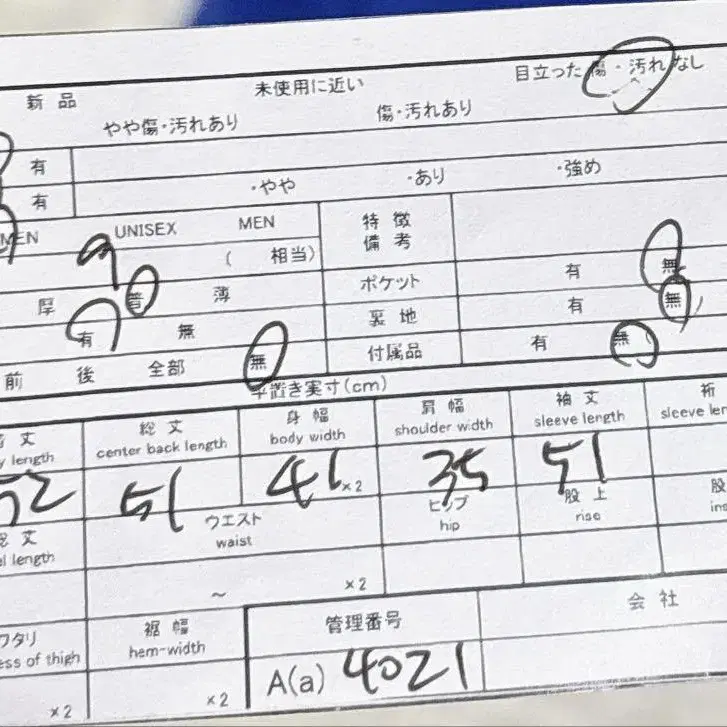 新品 未使用に近い 目立った傷・汚れなし
やや傷・汚れあり 傷・汚れあり
有
有 ・やや ・あり ・強め
MEN UNISEX MEN 特徴
備考
9 ( 相当)
厚 普 薄 ポケット 有 無
有 無 裏地 有 無
前 後 全部 無 付属品 有 無
平置き実寸(cm)
丈 総丈 身幅 肩幅 袖丈 裄
length center back length body width shoulder width sleeve length sleeve len
52 51 41 ×2 35 51
総丈 ウエスト ヒップ 股上 股
length waist hip rise
~ ×2
ワタリ 裾幅 管理番号 会社
ess of thigh hem-width
×2 ×2 A(a) 4021